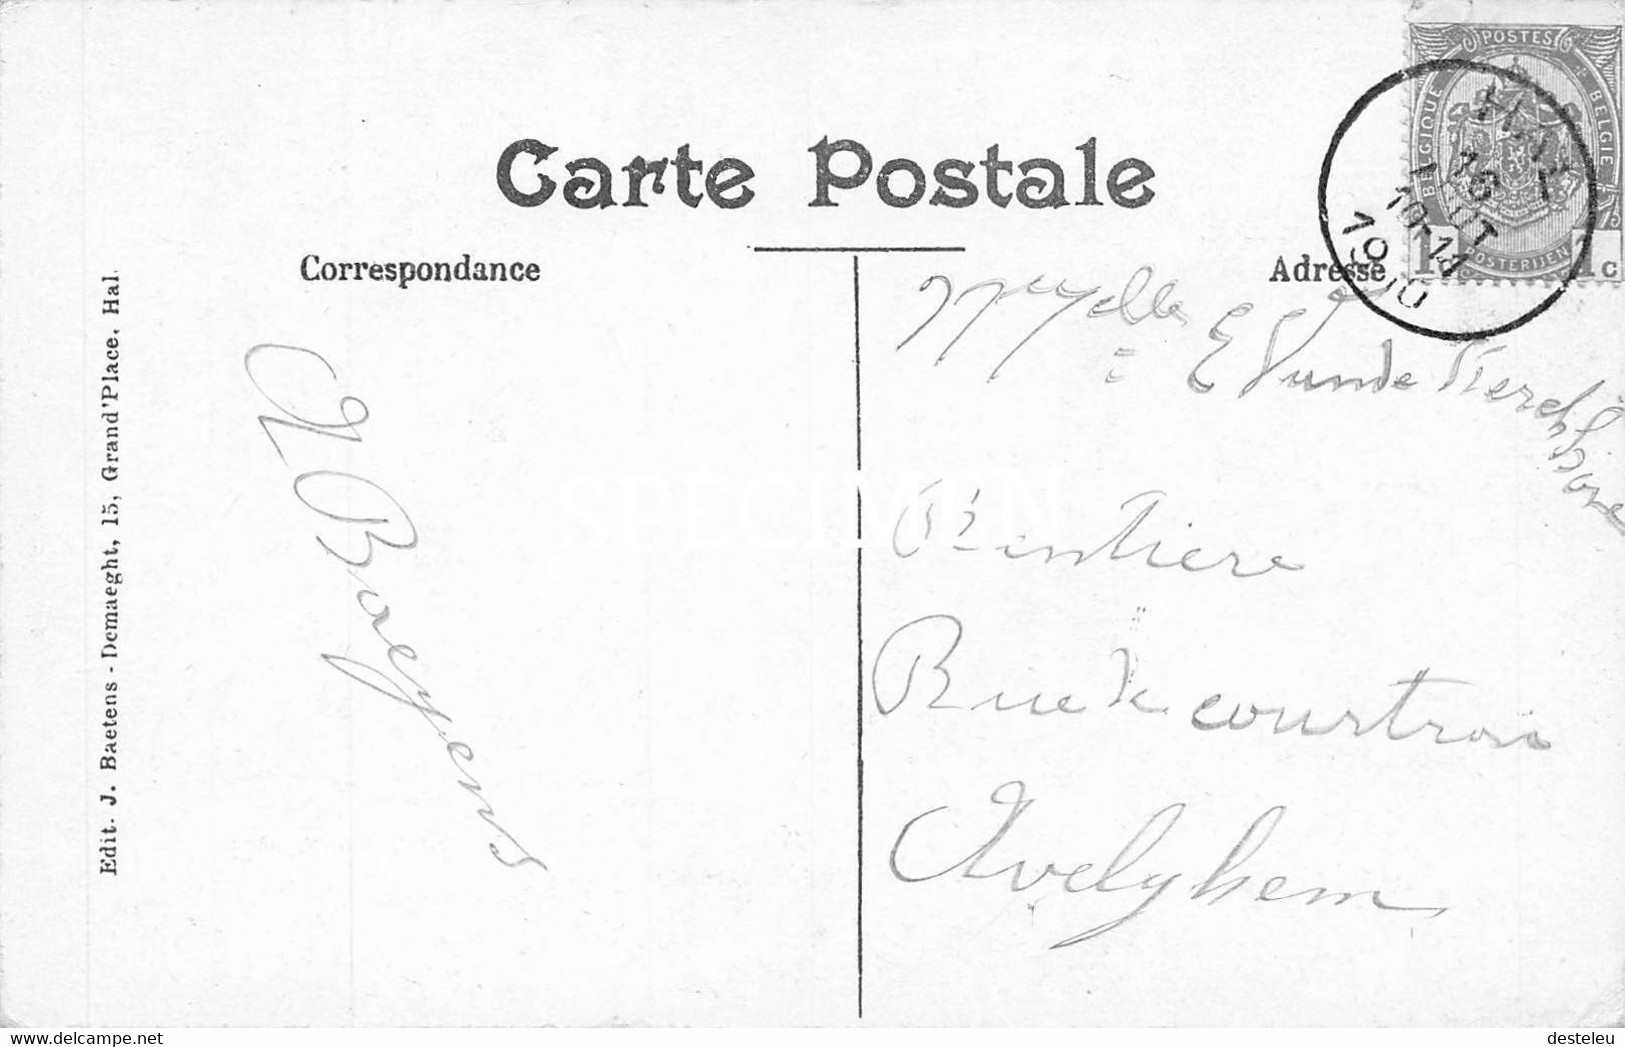 Carte Postale
Correspondance
Adresse
POSTES
BELGIQUE
BELGIE
POSTERIJEN
1 1 c
HAL
16
AOUT
10-11
1910
Melle E Vande Kerckhove
Rentiere
Rue de courtrai
Avelghem
Baeyens
Edit. J. Baetens - Demaeght, 15, Grand'Place, Hal.
SPECIMEN
www.delcampe.net
desteleu